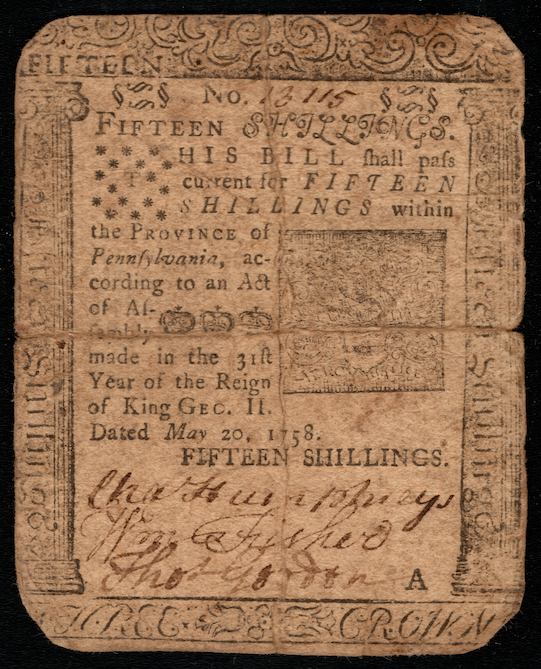 FIFTEEN
No. 13115
FIFTEEN SHILLINGS.
THIS BILL shall paſs
current for FIFTEEN
SHILLINGS within
the PROVINCE of
Pennſylvania, ac-
cording to an Act
of Aſ-
ſembly
made in the 31ſt
Year of the Reign
of King GEO. II.
Dated May 20, 1758.
FIFTEEN SHILLINGS.
Chaˢ Humphreys
Wm Fisher
Thoˢ Gordon A
THREE CROWN
Shillings
Fifteen Shillings